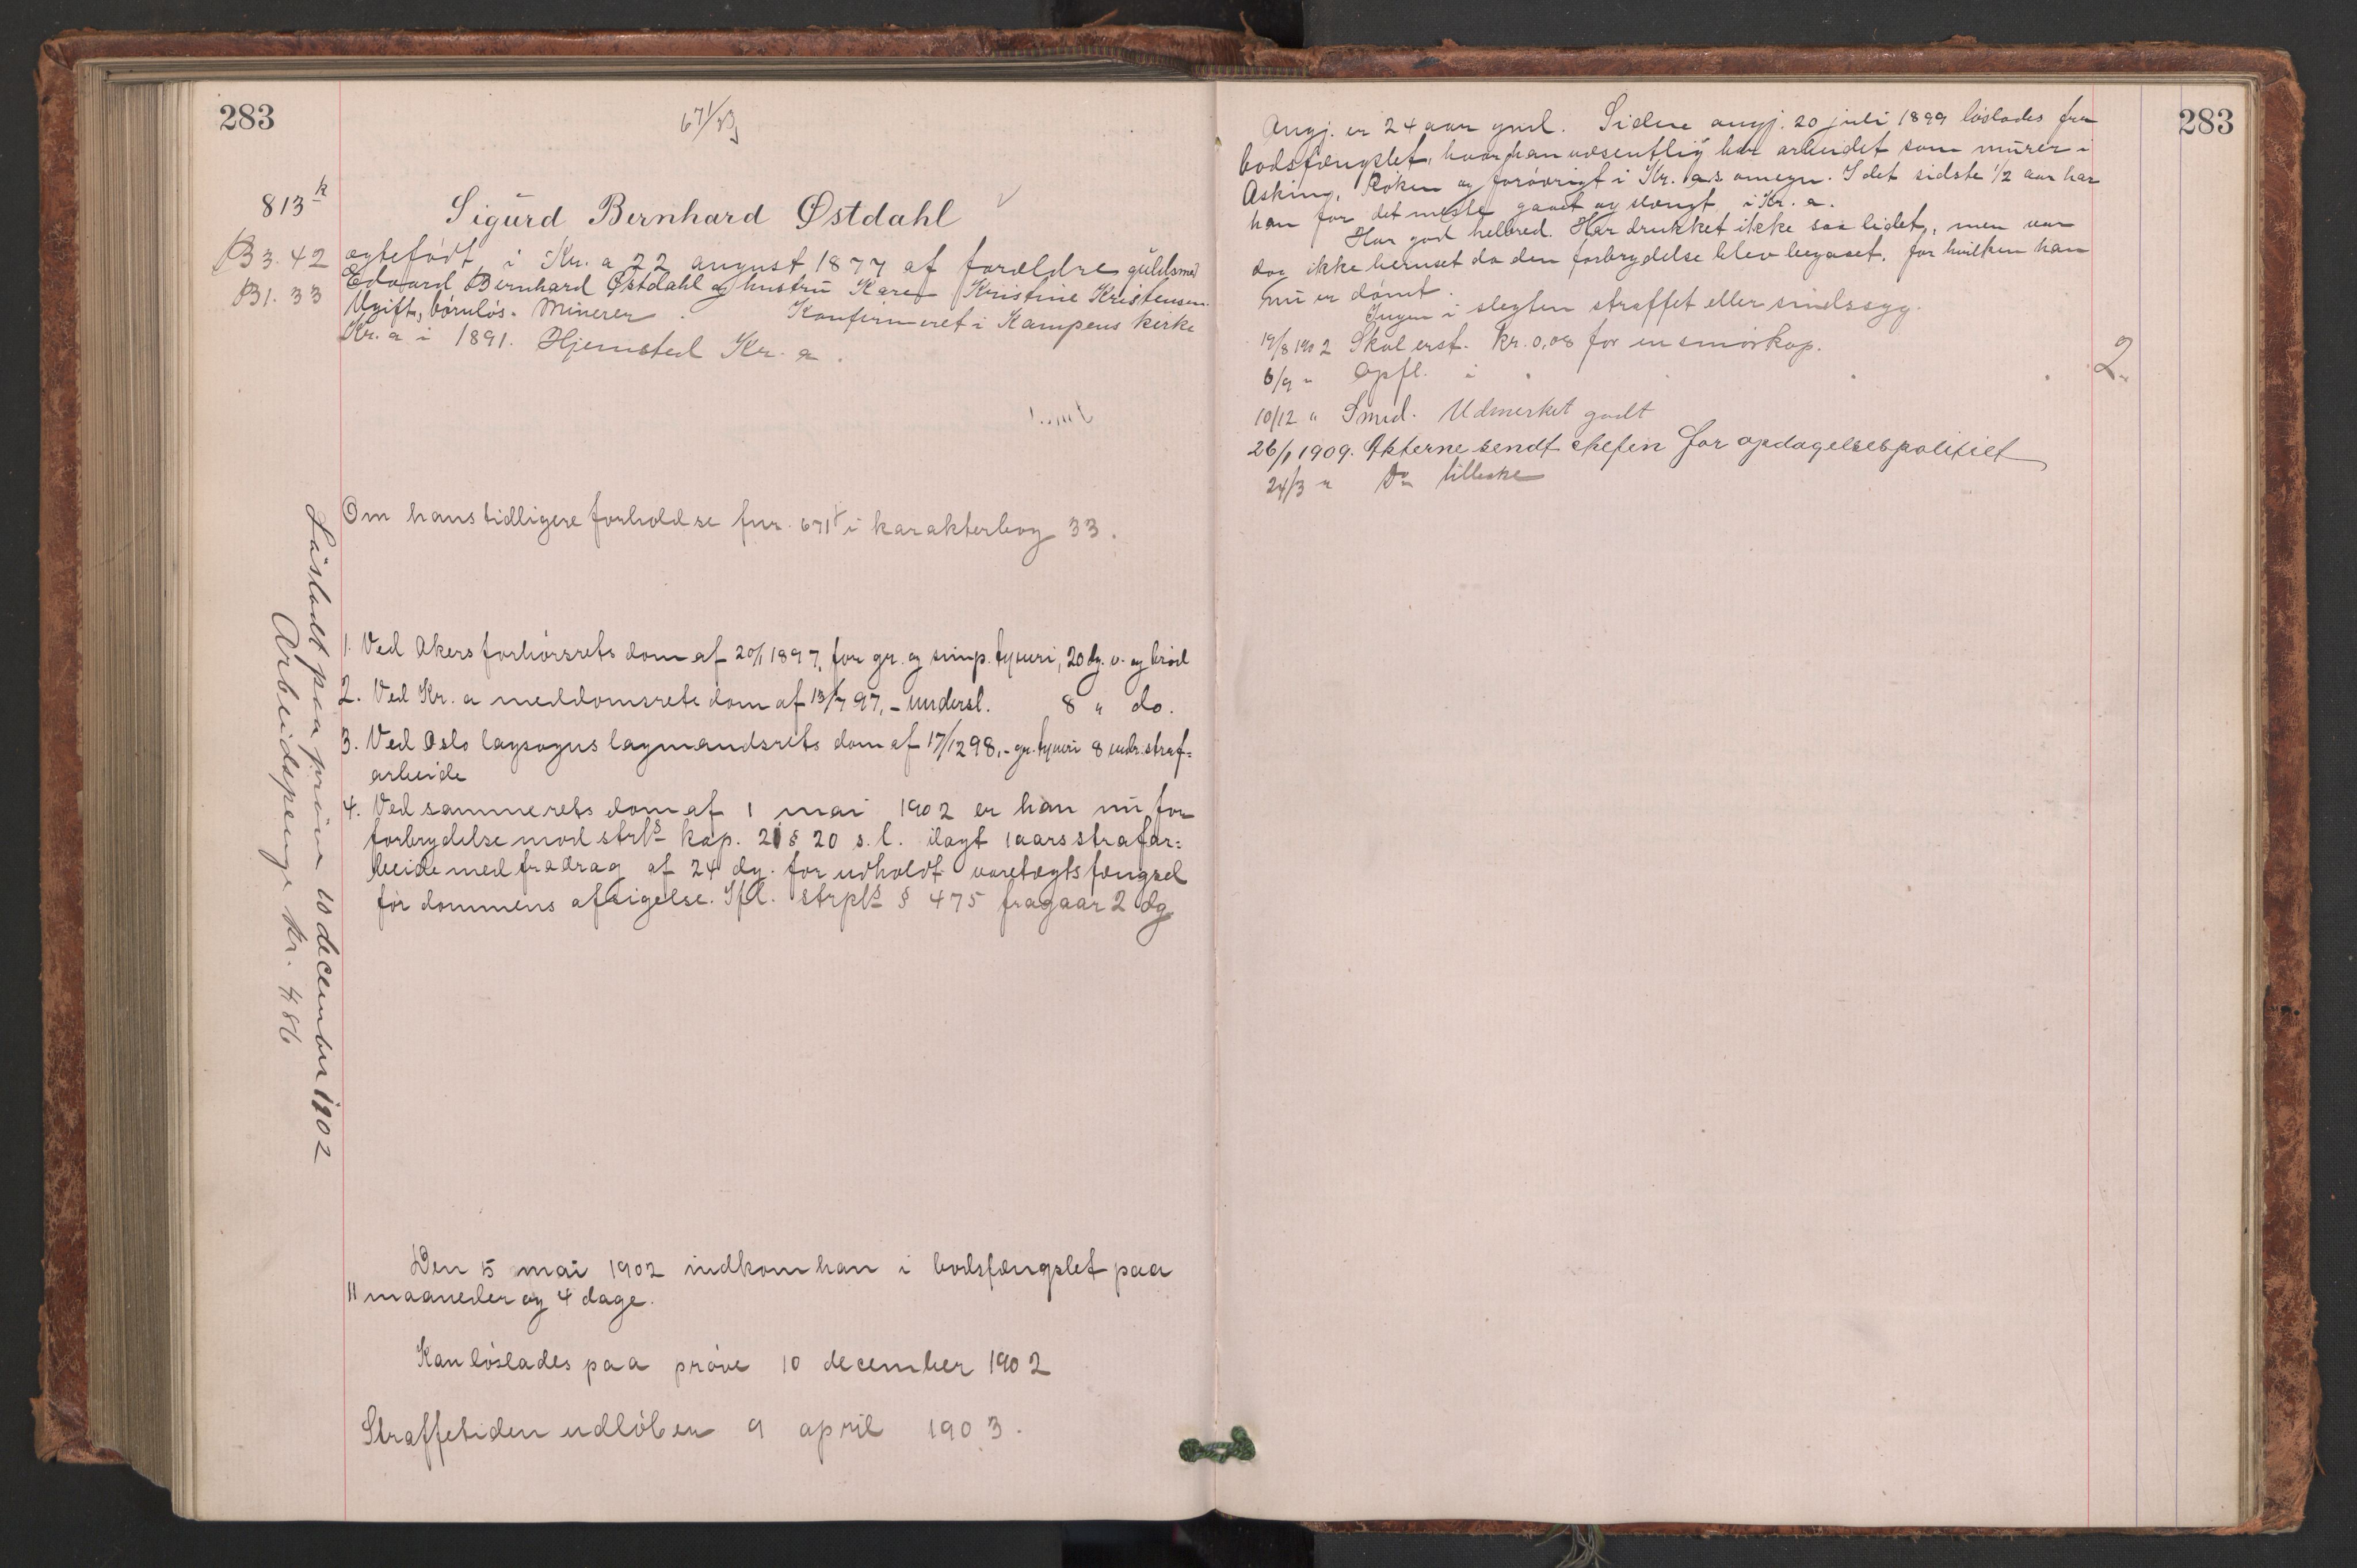 283
671/33
813k
Sigurd Bernhard Østdahl
B3. 42
B1. 33
ægtefødt i Kr.a 22 august 1877 af forældre guldsmed
Edvard Bernhard Østdahl og hustru Karen Kristine Kristensen.
Ugift, børnløs. Minerer. Konfirmeret i Kampens kirke
Kr.a i 1891. Hjemsted Kr.a.
Om hans tidligere forhold se fnr. 671k i karakterbog 33.
1. Ved Akers forhørsrets dom af 20/1 1897, for gr. og simp. tyveri, 20 dg. v. og brød
2. Ved Kr.a meddomsrets dom af 13/7 97, - undersl. 8 " do.
3. Ved Oslo lagsogns lagmandsrets dom af 17/12 98, - gr. tyveri 8 mdr. straf=
arbeide
4. Ved samme rets dom af 1 mai 1902 er han nu for
forbrydelse mod strls kap. 21 § 20 s.l. ilagt 1 aars strafar=
beide med fradrag af 24 dg. for udholdt varetægtsfængsel
før dommens afsigelse. Ifl. strpls § 475 fragaar 2 dg.
Den 5 mai 1902 indkom han i bodsfængslet paa
11 maaneder og 4 dage.
Kan løslades paa prøve 10 december 1902
Straffetiden udløber 9 april 1903.
Løsladt paa prøve 10 december 1902
Arbeidspenge kr. 4.86
283
Angj. er 24 aar gml. Siden angj. 20 juli 1899 løslades fra
bodsfængslet, hvor han væsentlig har arbeidet som murer i
Asking, Røken og forøvrigt i Kr.as omegn. I det sidste 1/2 aar har
han for det meste gaaet og slængt i Kr.a.
Har god helbred. Har drukket ikke saa lidet, men var
dog ikke beruset da den forbrydelse blev begaaet, for hvilken han
nu er dømt.
Ingen i slegten straffet eller sindssyg.
19/8 1902 Skal erst. kr. 0,08 for en smørkop.
6/9 " Opfl. i
2
10/12 " Smed. Udmerket godt
26/1 1909. Akterne sendt chefen for opdagelsespolitiet
24/3 " Do tilbake